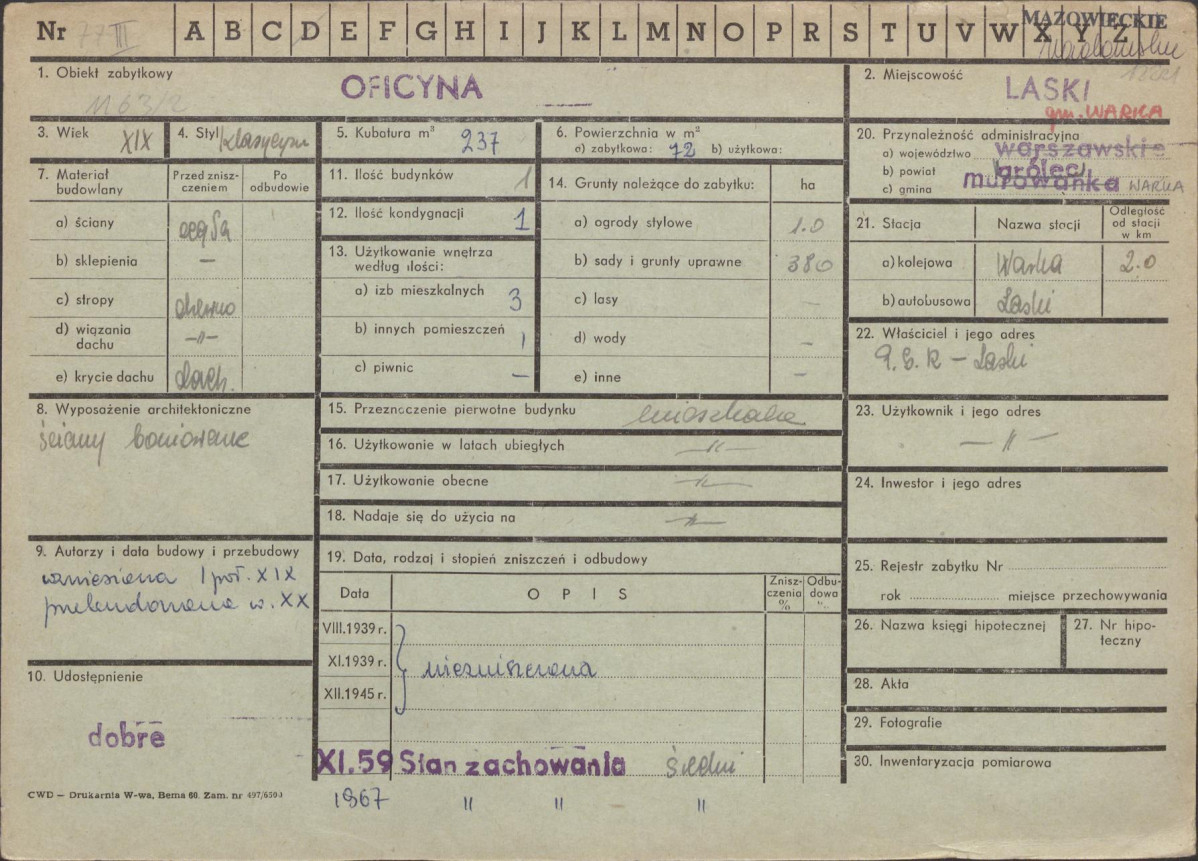 Nr 77 III A B C D E F G H I J K L M N O P R S T U V W X Y Z
MAZOWIECKIE
1. Obiekt zabytkowy
OFICYNA
1163/2
2. Miejscowość
LASKI
gm. WARKA
3. Wiek XIX
4. Styl klasycyzm
5. Kubatura m³ 237
6. Powierzchnia w m²
a) zabytkowa: 72 b) użytkowa:
20. Przynależność administracyjna
a) województwo warszawskie
b) powiat grójec
c) gmina murowanka WARKA
7. Materiał budowlany
Przed znisz-
czeniem
Po
odbudowie
a) ściany cegła
b) sklepienia —
c) stropy drewno
d) wiązania
dachu —"—
e) krycie dachu dach.
11. Ilość budynków 1
12. Ilość kondygnacji 1
13. Użytkowanie wnętrza
według ilości:
a) izb mieszkalnych 3
b) innych pomieszczeń 1
c) piwnic —
14. Grunty należące do zabytku: ha
a) ogrody stylowe 1.0
b) sady i grunty uprawne 380
c) lasy —
d) wody —
e) inne —
21. Stacja
Nazwa stacji
Odległość
od stacji
w km
a) kolejowa Warka 2.0
b) autobusowa Laski
22. Właściciel i jego adres
P.G.R — Laski
8. Wyposażenie architektoniczne
ściany boniowane
15. Przeznaczenie pierwotne budynku mieszkalne
16. Użytkowanie w latach ubiegłych —"—
17. Użytkowanie obecne —"—
18. Nadaje się do użycia na —"—
23. Użytkownik i jego adres
—"—
24. Inwestor i jego adres
9. Autorzy i data budowy i przebudowy
wzniesiona I poł. XIX
przebudowana w. XX
19. Data, rodzaj i stopień zniszczeń i odbudowy
Data
OPIS
Znisz-
czenia
%
Odbu-
dowa
%
VIII.1939 r.
XI.1939 r. niezniszczona
XII.1945 r.
25. Rejestr zabytku Nr
rok miejsce przechowywania
26. Nazwa księgi hipotecznej
27. Nr hipo-
teczny
10. Udostępnienie
dobre
28. Akta
29. Fotografie
30. Inwentaryzacja pomiarowa
XI.59 Stan zachowania średni
1967 " " "
CWD — Drukarnia W-wa, Bema 60. Zam. nr 497/650J